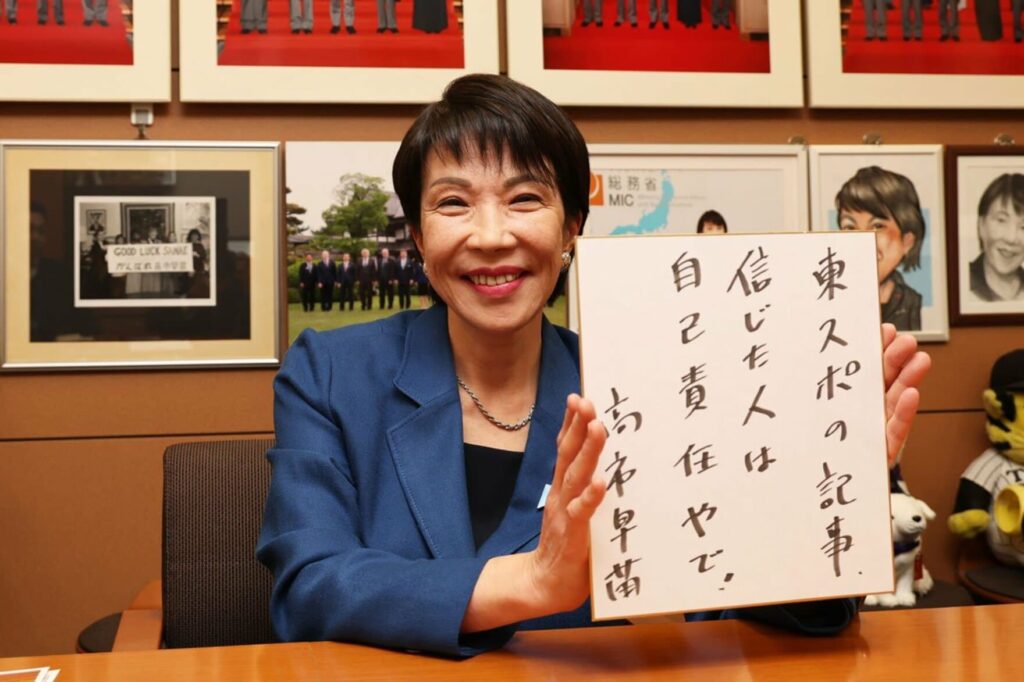 東スポの記事、
信じた人は
自己責任やで!
高市早苗
GOOD LUCK SANAE
総務省
MIC